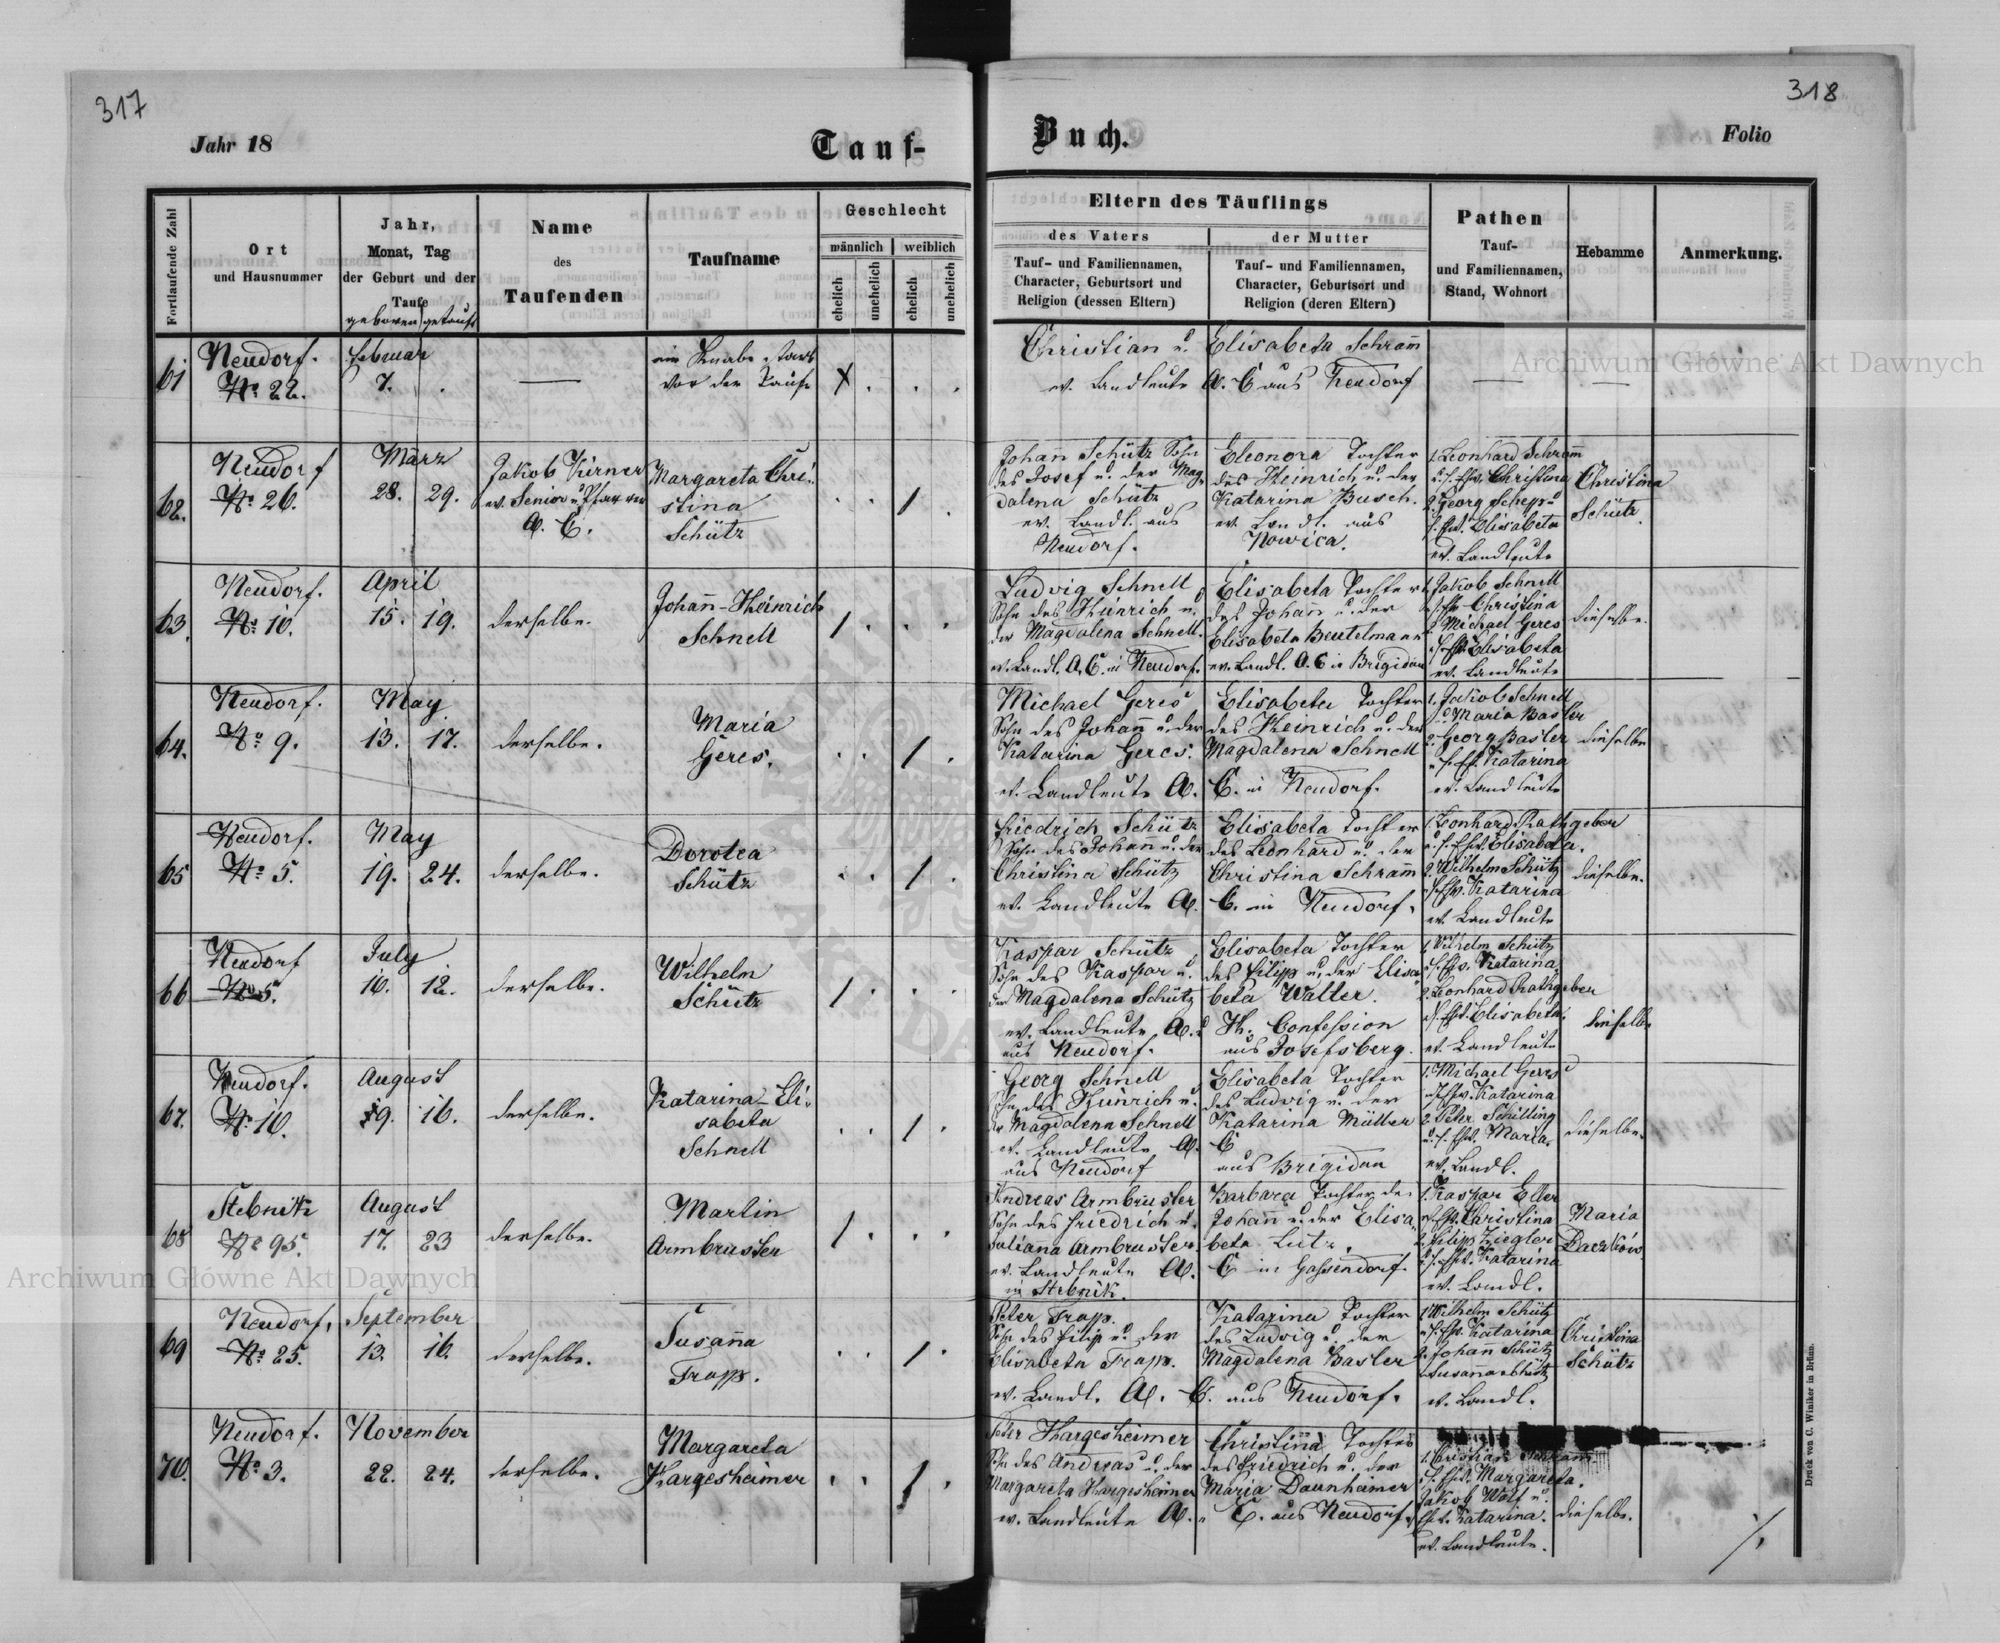 317
Jahr 18
Tauf-
Fortlaufende Zahl
Ort
und Hausnummer
Jahr,
Monat, Tag
der Geburt und der
Taufe
geboren getauft
Name
des
Taufenden
Taufname
Geschlecht
männlich
weiblich
ehelich
unehelich
ehelich
unehelich
61
Neudorf.
No 22.
Februar
7.
ein Knabe starb
vor der Taufe
X
62.
Neudorf
No 26.
März
28. 29.
Jakob Kirner
ev. Senior u. Pfarrer
A. C.
Margareta Chri-
stina
Schütz
63.
Neudorf.
No 10.
April
15. 19.
derselbe.
Johann-Heinrich
Schnell
64.
Neudorf.
No 9.
May
13. 17.
derselbe.
Maria
Geres.
65
Neudorf.
No 5.
May
19. 24.
derselbe.
Dorotea
Schütz
66
Neudorf
No 5.
July
10. 12.
derselbe.
Wilhelm
Schütz
67.
Neudorf.
No 10.
August
9. 16.
derselbe.
Katarina-Eli-
sabeta
Schnell
68
Stebnik
No 95.
August
17. 23
derselbe.
Martin
Armbruster
69
Neudorf.
No 25.
September
13. 16.
derselbe.
Susanna
Trapp.
70.
Neudorf.
No 3.
November
22. 24.
derselbe.
Margareta
Hargesheimer
318
Buch.
Folio
Eltern des Täuflings
des Vaters
Tauf- und Familiennamen,
Character, Geburtsort und
Religion (dessen Eltern)
der Mutter
Tauf- und Familiennamen,
Character, Geburtsort und
Religion (deren Eltern)
Pathen
Tauf-
und Familiennamen,
Stand, Wohnort
Hebamme
Anmerkung.
Christian u. Elisabeta Schram̄
ev. Landleute A. C aus Neudorf
Johan̄ Schütz Sohn
des Josef u. der Mag-
dalena Schütz
ev. Landl. aus
Neudorf.
Eleonora Tochter
des Heinrich u. der
Katarina Busch.
ev. Landl. aus
Nowica.
1. Leonhard Schram̄
u. s. Ehw. Christina
2. Georg Schepp u
s. Ehw. Elisabeta
ev. Landleute
Christina
Schütz
Ludvig Schnell
Sohn des Heinrich u.
der Magdalena Schnell.
ev. Landl. A. C. in Neudorf.
Elisabeta Tochter
des Johan̄ u. der
Elisabeta Beutelmaner
ev. Landl. A. C in Brigidau
1. Jakob Schnell
Christina
2. Michael Geres
u. s. Ehw. Elisabeta
ev. Landleute
dieselbe.
Michael Geres
Sohn des Johan̄ u. der
Katarina Geres.
ev. Landleute A.
Elisabeta Tochter
des Heinrich u. der
Magdalena Schnell
C. in Neudorf.
1. Jakob Schnell
u. Maria Basler
2. Georg Basler
u. s. Ehw. Katarina
ev. Landleute
dieselbe
Friedrich Schütz
Sohn des Johann u. der
Christina Schütz
ev. Landleute A.
Elisabeta Tochter
des Leonhard u. der
Christina Schram̄
C. in Neudorf.
1. Leonhard Rathgeber
u. s. Ehw. Elisabeta.
2. Wilhelm Schütz
u. s. Ehw. Katarina
ev. Landleute
dieselbe.
Kaspar Schütz
Sohn des Kaspar u.
der Magdalena Schütz
ev. Landleute A. u
aus Neudorf.
Elisabeta Tochter
des Filipp u. der Elisa-
beta Walter.
H. Confession
aus Josefsberg.
1. Wilhelm Schütz
u. s. Ehw. Katarina
2. Leonhard Rathgeber
u. s. Ehw. Elisabeta.
ev. Landleute
dieselbe
Georg Schnell
Sohn des Heinrich u.
der Magdalena Schnell
ev. Landleute A.
aus Neudorf
Elisabeta Tochter
des Ludvig u. der
Katarina Müller
C
aus Brigidau
1. Michael Geres
u. s. Ehw. Katarina
2. Peter Schilling
u. s. Ehw. Maria.
ev. Landl.
dieselbe.
Andreas Armbruster
Sohn des Friedrich u.
Julianna Armbruster
ev. Landleute A.
in Stebnik.
Barbara Tochter des
Johan̄ u. der Elisa-
beta Lutz.
C in Gassendorf.
1. Kaspar Eller
u. s. Ehw. Christina
2. Filipp Ziegler
u. s. Ehw. Katarina
ev. Landl.
Maria
Peter Trapp.
Sohn des Filip u. der
Elisabeta Trapp.
ev. Landl. A.
Katarina Tochter
des Ludvig u. der
Magdalena Basler
C. aus Neudorf.
1. Wilhelm Schütz
u. s. Ehw. Katarina
2. Johan Schütz
Susanna Schütz
ev. Landl.
Christina
Schütz
Peter Hargesheimer
Sohn des Andreas u. der
Margareta Hargesheimer
ev. Landleute A.
Christinna Tochter
des Friedrich u. der
Maria Daunheimer
C. aus Neudorf.
1. Christian Schram̄
u. s. Ehw. Margareta.
Jakob Wolf u.
Ehw. Katarina.
ev. Landleute.
dieselbe.
Druck von C. Winiker in Brünn.
Archiwum Główne Akt Dawnych
Archiwum Główne Akt Dawnych